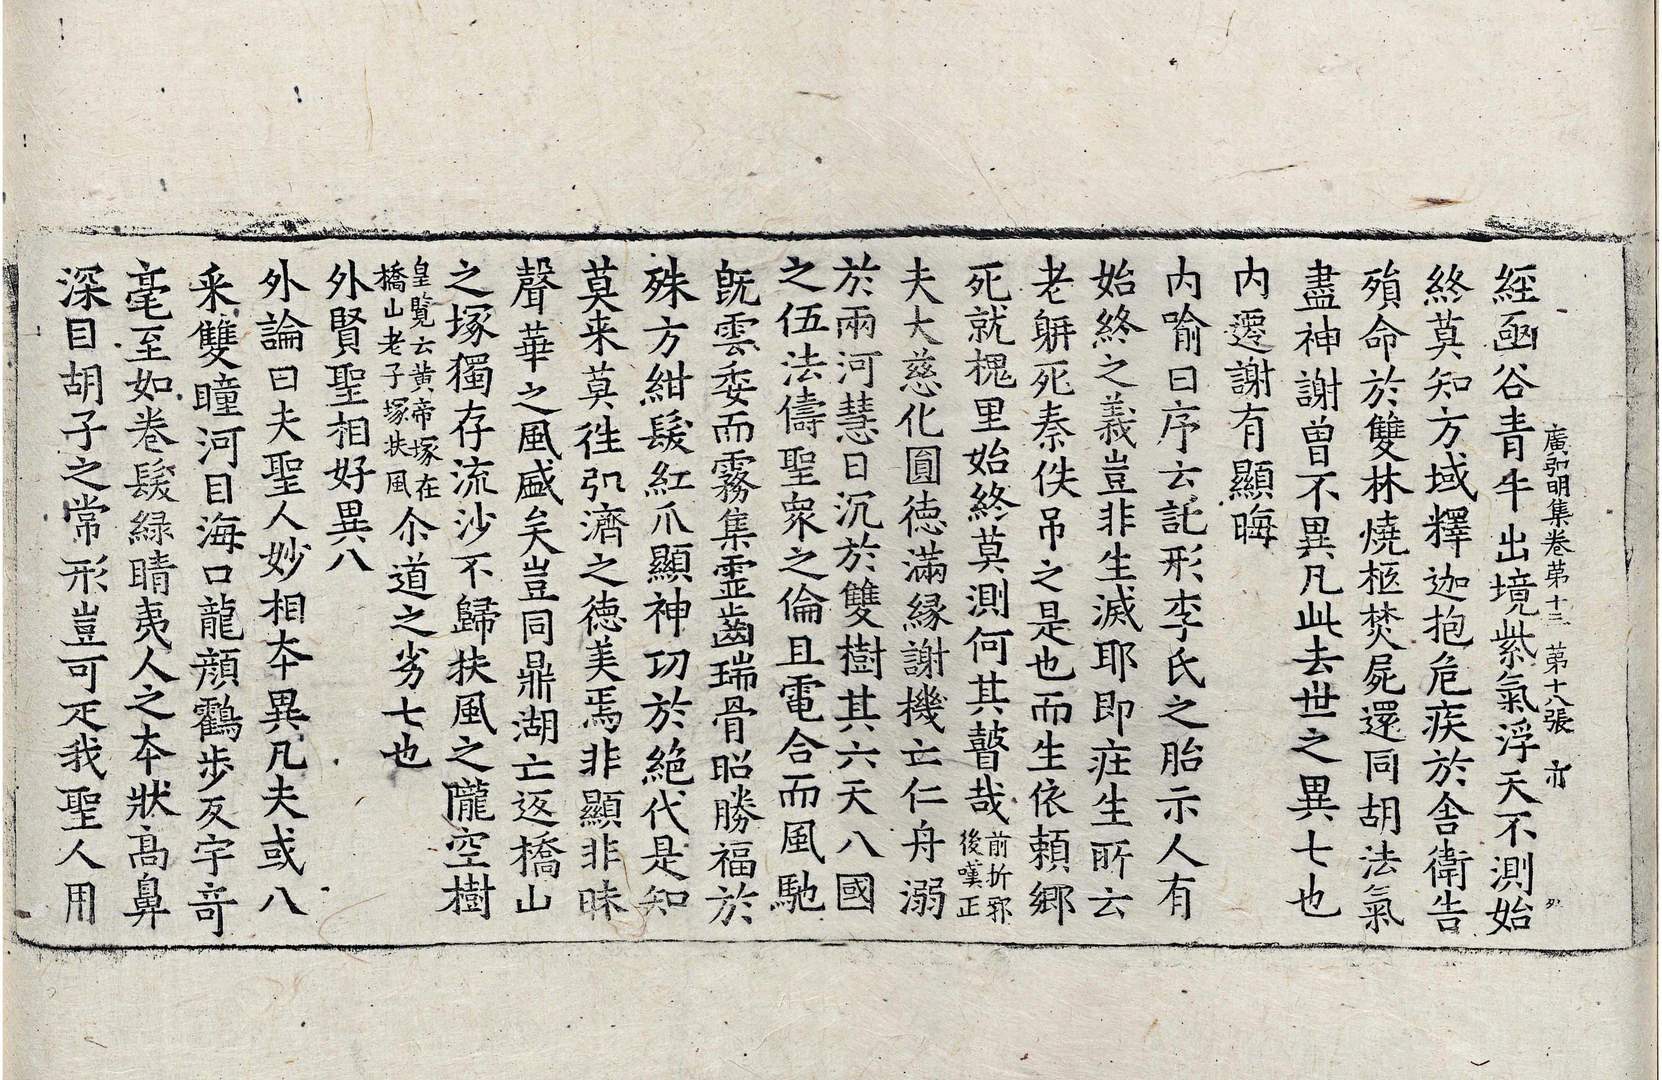 廣弘明集卷第十三 第十八張 㐧
經函谷青牛出境紫氣浮天不測始
終莫知方域釋迦抱危疾於舍衛告
殞命於雙林燒柩焚屍還同胡法氣
盡神謝曽不異凡此去世之異七也
内遷謝有顯晦
内喻曰序云託形李氏之胎示人有
始終之義豈非生滅耶即莊生所云
老聃死秦佚吊之是也而生依頼郷
死就槐里始終莫測何其瞽哉前折邪後嘆正
夫大慈化圓徳滿縁謝機亡仁舟溺
於兩河慧日沉於雙樹其六天八國
之伍法儔聖衆之倫且電合而風馳
旣雲委而霧集靈齒瑞骨昭勝福於
殊方紺髮紅爪顯神功於絶代是知
莫来莫徃弘濟之徳美焉非顯非昧
聲華之風盛矣豈同鼎湖亡返橋山
之塚獨存流沙不歸扶風之隴空樹
皇覧云黄帝塚在橋山老子塚扶風 尒道之劣七也
外賢聖相好異八
外論曰夫聖人妙相本異凡夫或八
采雙瞳河目海口龍顔鶴步反宇竒
毫至如卷髮緑睛夷人之本狀髙鼻
深目胡子之常形豈可疋我聖人用